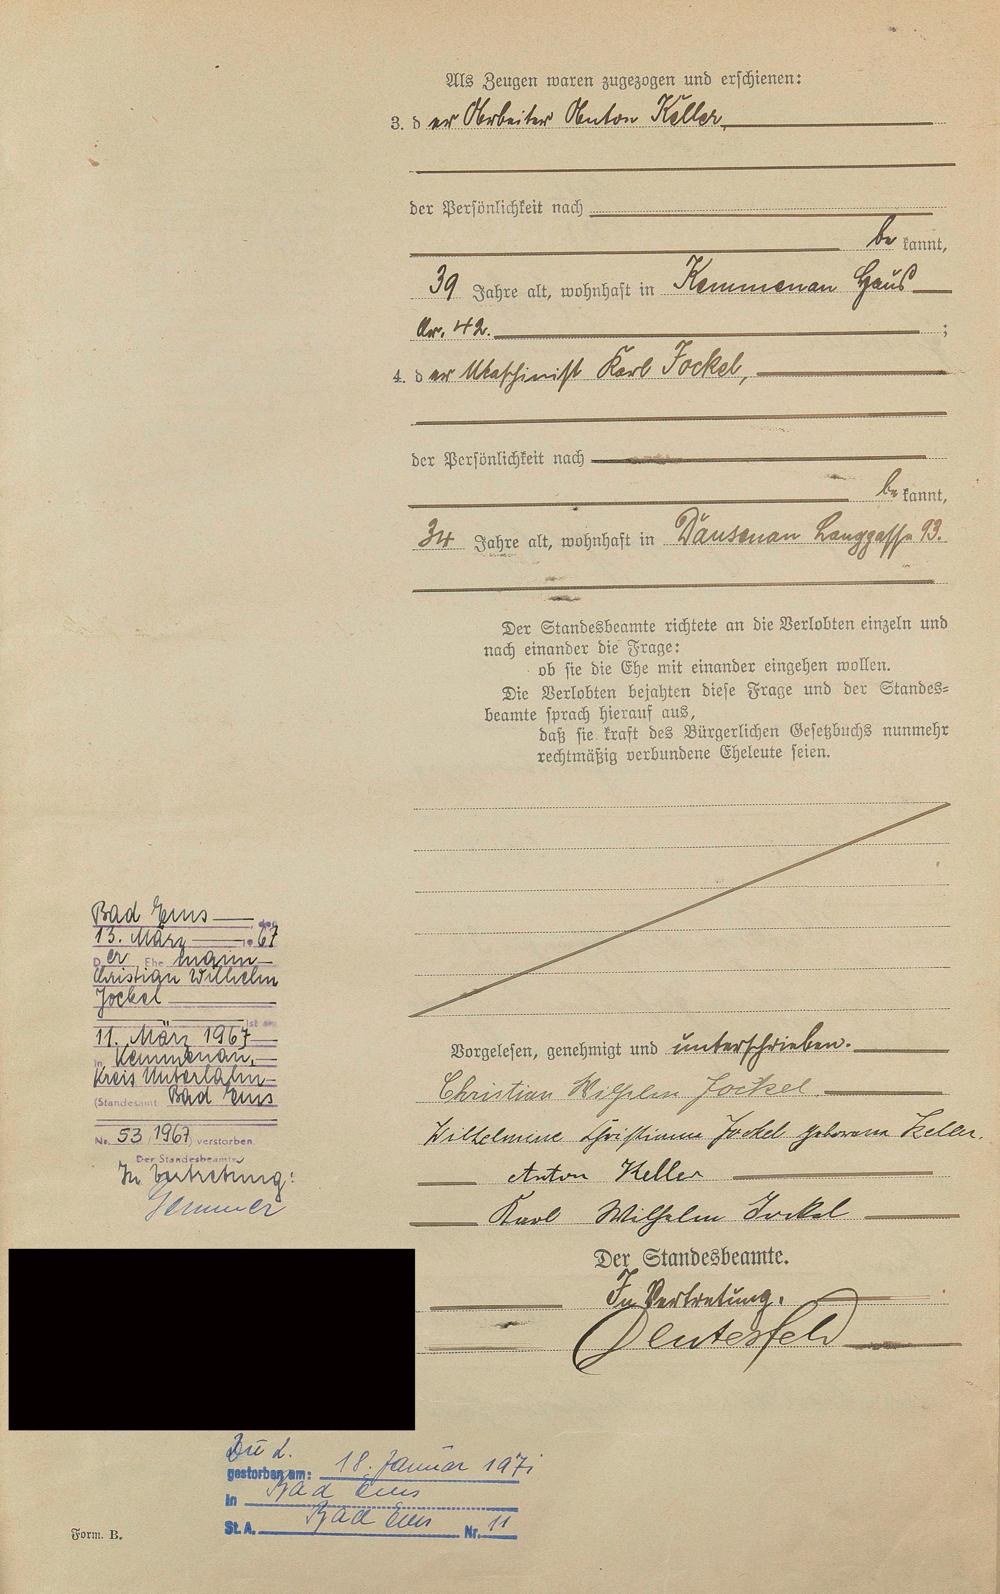 Als Zeugen waren zugezogen und erschienen:
3. d er Arbeiter Anton Keller,
der Persönlichkeit nach
be kannt,
39 Jahre alt, wohnhaft in Kemmenau Haus
Nr. 42. ;
4. d er Maschinist Karl Jockel,
der Persönlichkeit nach
be kannt,
34 Jahre alt, wohnhaft in Dausenau Langgasse 93.
Der Standesbeamte richtete an die Verlobten einzeln und
nach einander die Frage:
ob sie die Ehe mit einander eingehen wollen.
Die Verlobten bejahten diese Frage und der Standes=
beamte sprach hierauf aus,
daß sie kraft des Bürgerlichen Gesetzbuchs nunmehr
rechtmäßig verbundene Eheleute seien.
Vorgelesen, genehmigt und unterschrieben.
Christian Wilhelm Jockel.
Wilhelmine Christiane Jockel geborene Keller.
Anton Keller
Karl Wilhelm Jockel
Der Standesbeamte.
In Vertretung.
Bad Ems, den
13. März 1967
Der Ehemann
Christian Wilhelm
Jockel
ist am
11. März 1967
in Kemmenau,
Kreis Unterlahn
(Standesamt Bad Ems
Nr. 53/1967) verstorben.
Der Standesbeamte
In Vertretung:
gestorben am: 18. Januar 1971
in Bad Ems
St. A. Bad Ems Nr. 11
Form. B.